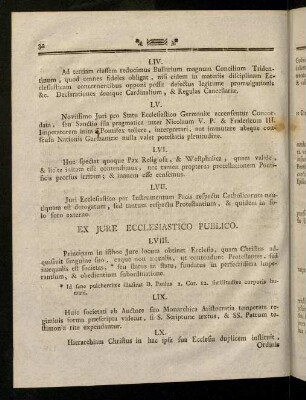 32
LIV.
Ad tertiam classem reducimus Illustrium magnum Concilium Triden-
tinum, quod omnes fideles obligat, nisi eidem in materiis disciplinam Ec-
clesiasticam concernentibus opponi possit defectus legitimæ promulgationis;
&c. Declarationes denique Cardinalium, & Regulas Cancellariæ.
LV.
Novissimo Juri pro Statu Ecclesiastico Germaniæ accensentur Concor-
data, seu Sanctio illa pragmatica inter Nicolaum V. P. & Fridericum III.
Imperatorem inita Pontifex tollere, interpretari, aut immutare absque con-
sensu Nationis Germanicæ nulla valet potestatis plenitudine.
LVI.
Huc spectat quoque Pax Religiosa, & Westphalica, quam validè,
& licitè initam esse contendimus, nec tamen propterea protestationem Pont-
ificis prorsus irritam; & inanem esse censemus.
LVII.
Juri Ecclesiastico per Instrumentum Pacis respectu Catholicorum neu-
tiquam est derogatum, sed tantum respectu Protestantium, & quidem in
solo foro externo.
EX JURE ECCLESIASTICO PUBLICO.
LVIII.
Primarium in isthoc Jure locum obtinet Ecclesia, quam Christus ad-
quisivit sanguine suo, eaque non ut contendunt Protestantes, des
inæqualis est societas, * seu status in statu, fundatus in perfectissima impe-
randum, & obedientium subordinatione.
* Id sane pulcherrime illustrat D. Paulus 1. Cor. 12. similitudine corporis hu-
mani.
LIX.
Huic societati ab Auctore seu Monarchica Aristocratia temperata re-
giminis forma præscripta videtur, si S. Scripturæ textus, & SS. Patrum tes-
timonia rite expendantur.
LX.
Hierarchiam Christus in hac ipsa sua Ecclesia duplicem instituit,
Ordinis